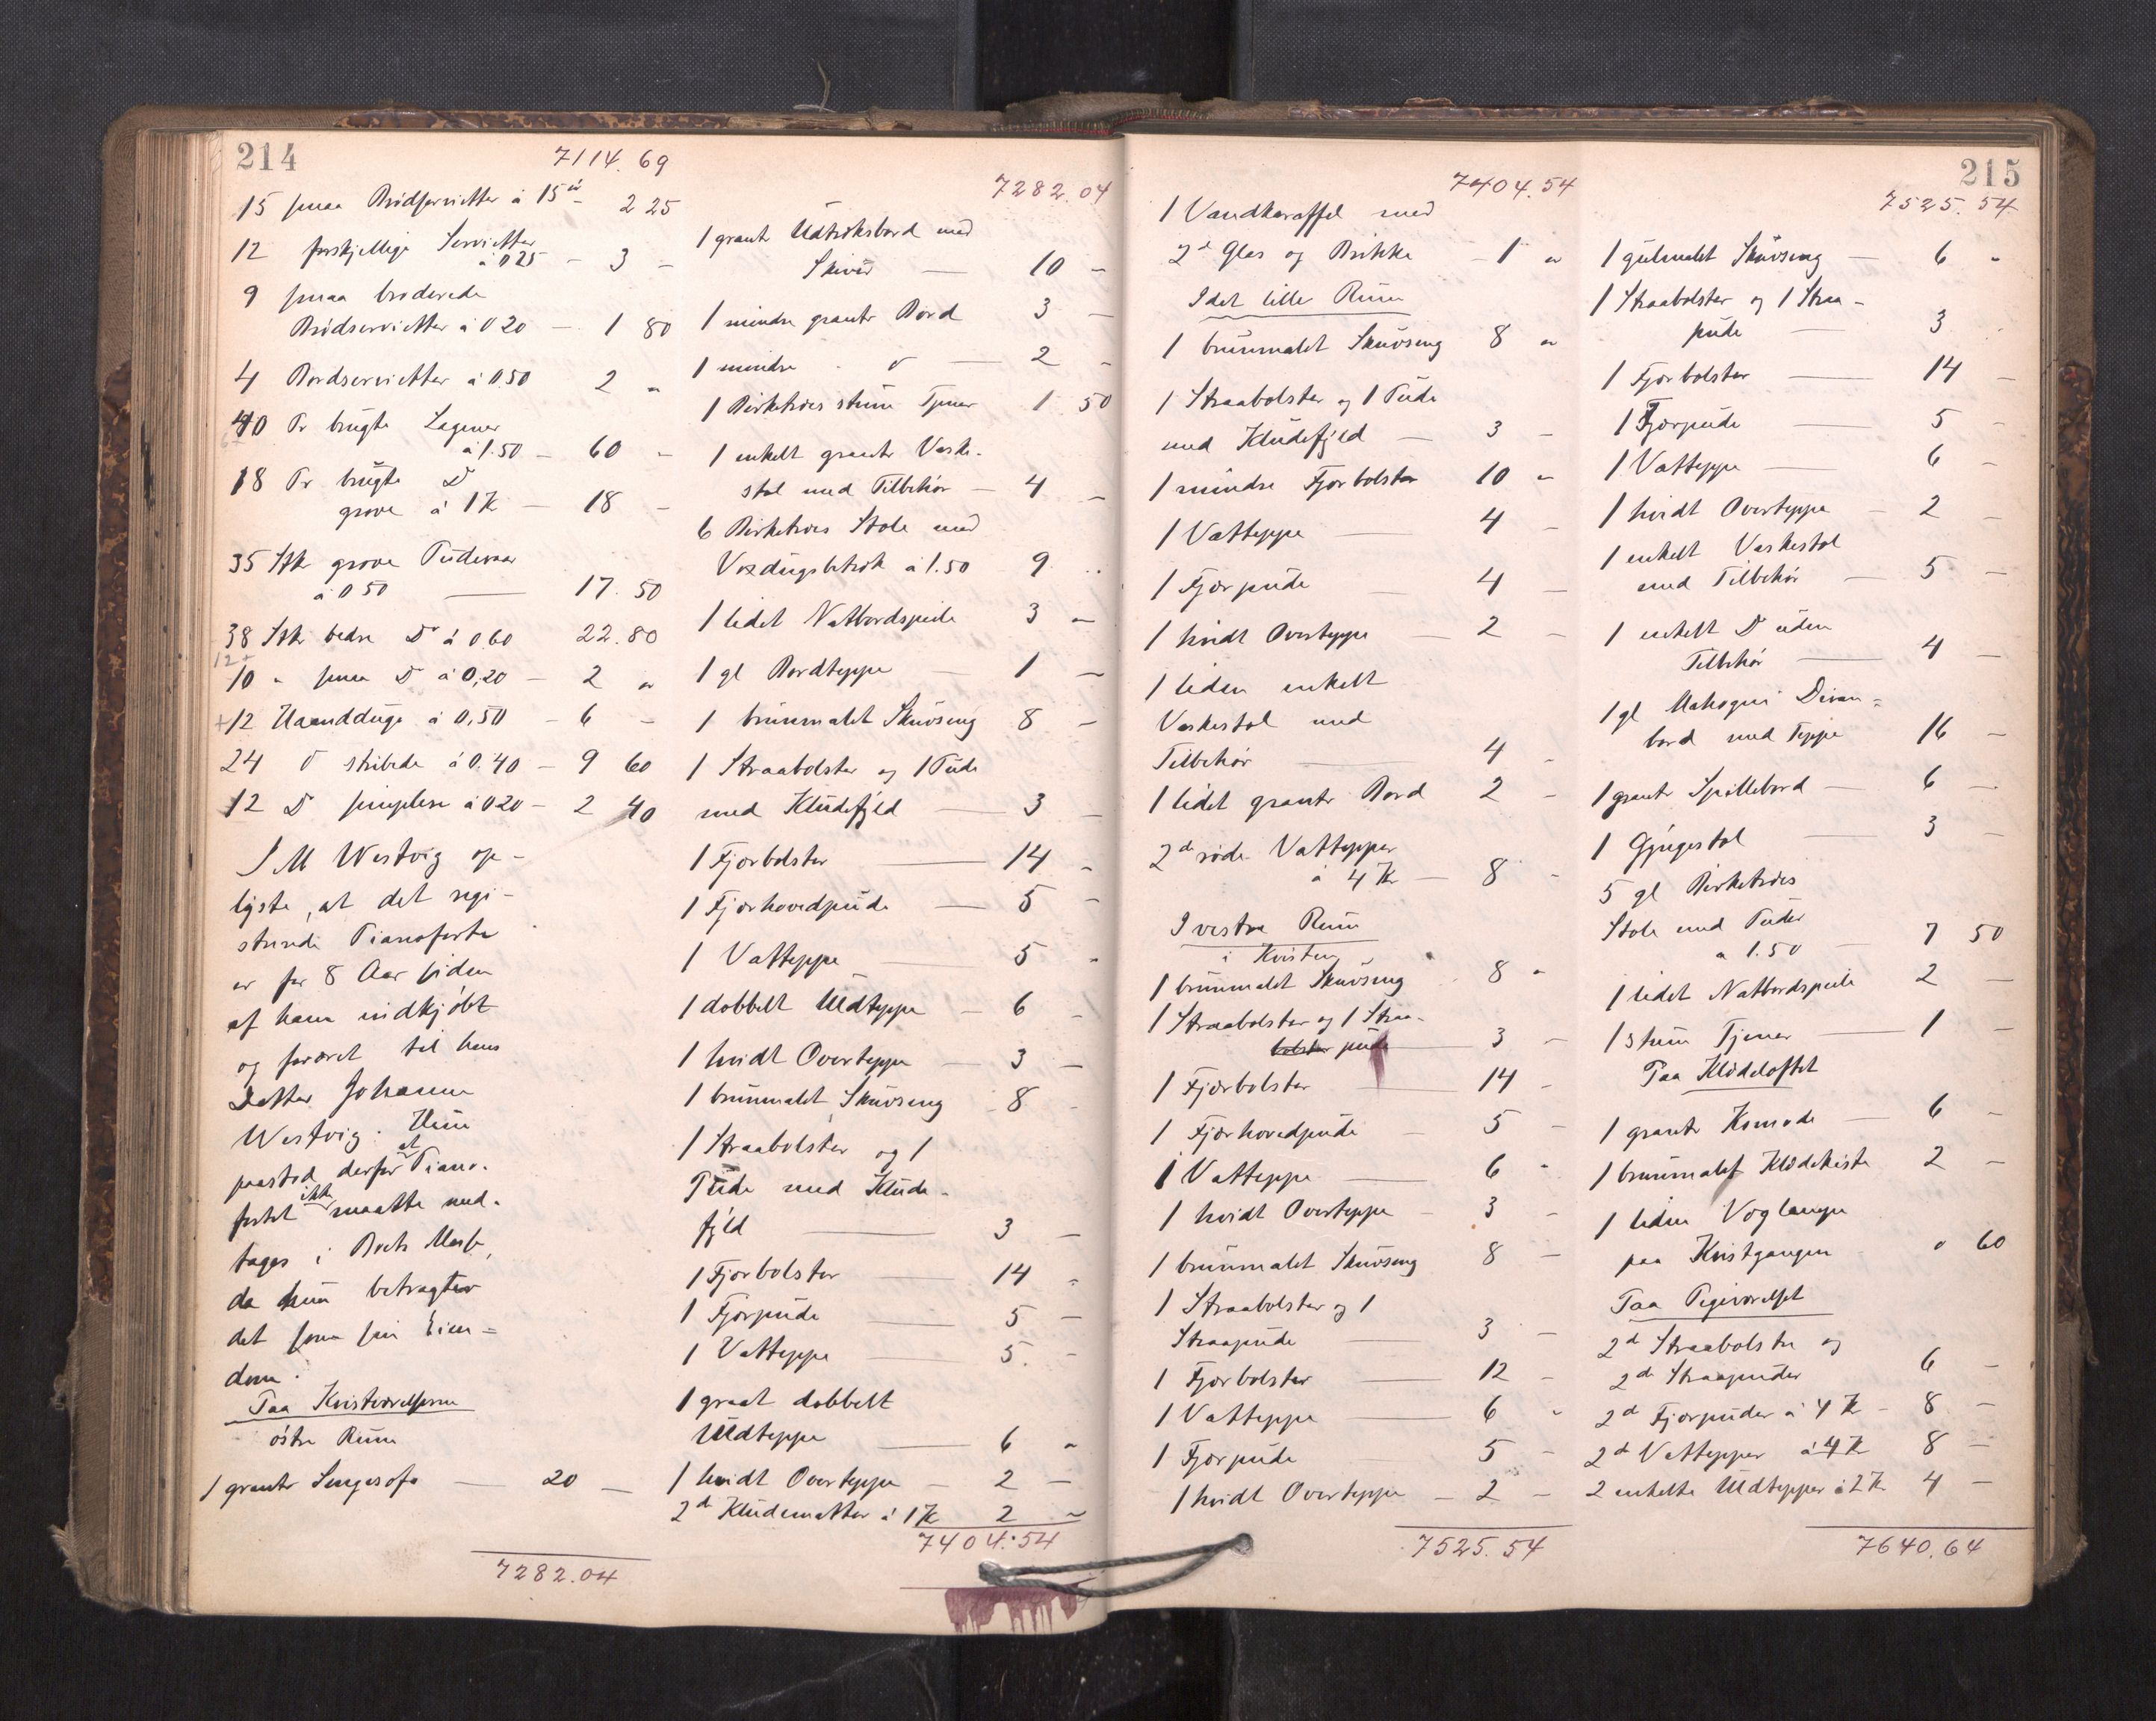 214
7114.69
15 smaa Brödservietter à 15 ö - 2 25
12 forskjellige Servietter
à 0 25 - 3 -
9 smaa broderede
Brödservietter à 0 20 - 1 80
4 Bordservietter à 0.50 2 -
40 Pr brugte Lagener
à 1.50 - 60 -
18 Pr brugte Do
grove à 1 K - 18 -
35 Stk grove Pudevaar
à 0 50 - 17.50
38 Stk bedre Do à 0.60 22.80
12+
10 " smaa Do à 0,20 - 2 -
+12 Haandduge à 0,50 - 6 -
24 do stribede à 0.40 - 9 60
12 Do simplere à 0 20 - 2 40
J M Westvig op-
lyste, at det regi-
strerede Pianoforte
er for 8 Aar siden
af ham indkjöbt
og foræret til hans
Datter Johanne
Westvig. Hun
paastod derfor at Piano-
fortet ikke maatte med-
tages i Boets Masse,
da hun betragter
det som sin Eien-
dom.
Paa Kvistværelserne
östre Rum
1 grantr Sengesofa - 20 -
7282.04
7282.04
1 grantr Udtræksbord med
Skiver - 10 -
1 mindre grantr Bord 3 -
1 mindre do - 2 -
1 Birketræes stum Tjener 1 50
1 enkelt grantr Vaske-
stol med Tilbehör - 4 -
6 Birketræes Stole med
Voxdugsbetræk à 1.50 9 -
1 lidet Natbordspeile 3 -
1 gl Bordteppe - 1 -
1 brunmalet Skuvseng 8 -
1 Straabolster og 1 Pude
med Kludefyld - 3 -
1 Fjærbolster - 14 -
1 Fjærhovedpude - 5 -
1 Vatteppe - 5 -
1 dobbelt Uldteppe - 6 -
1 hvidt Overteppe - 3 -
1 brunmalet Skuvseng - 8 -
1 Straabolster og 1
Pude med Klude-
fyld - 3 -
1 Fjærbolster - 14 -
1 Fjærpude - 5 -
1 Vatteppe - 5 -
1 graat dobbelt
Uldteppe - 6 -
1 hvidt Overteppe - 2 -
2de Kludematter à 1 K 2 -
7404.54
215
7404.54
1 Vandkaraffel med
2de Glas og Brikke - 1 -
I det lille Rum
1 brunmalet Skuvseng 8 -
1 Straabolster og 1 Pude
med Kludefyld - 3 -
1 mindre Fjærbolster 10 -
1 Vatteppe - 4 -
1 Fjærpude - 4 -
1 hvidt Overteppe - 2 -
1 liden enkelt
Vaskestol med
Tilbehör - 4 -
1 lidet grantr Bord 2 -
2de röde Vattepper
à 4 Kr - 8 -
I vestre Rum
i Kvisten
1 brunmalet Skuvseng - 8 -
1 Straabolster og 1 Straa-
bolster pude - 3 -
1 Fjærbolster - 14 -
1 Fjærhovedpude - 5 -
1 Vatteppe - 6 -
1 hvidt Overteppe - 3 -
1 brunmalet Skuvseng 8 -
1 Straabolster og 1
Straapude - 3 -
1 Fjærbolster - 12 -
1 Vatteppe - 6 -
1 Fjærpude - 5 -
1 hvidt Overteppe - 2 -
7525.54
7525.54
1 gulmalet Skuvseng - 6 -
1 Straabolster og 1 Straa-
pude - 3 -
1 Fjærbolster - 14 -
1 Fjærpude - 5 -
1 Vatteppe - 6 -
1 hvidt Overteppe - 2 -
1 enkelt Vaskestol
med Tilbehör - 5 -
1 enkelt Do uden
Tilbehör - 4 -
1 gl Mahogni Divan-
bord med Teppe 16 -
1 grantr Spillebord - 6 -
1 Gyngestol - 3 -
5 gl Birketræes
Stole med Puder
à 1.50 - 7 50
1 lidet Natbordspeile 2 -
1 stum Tjener - 1 -
Paa Klædeloftet
1 grantr Komode - 6 -
1 brunmalet Klædekiste 2 -
1 liden Væglampe
paa Kvistgangen 0 60
Paa Pigeværelset
2de Straabolstre og
2de Straapuder 6 -
2de Fjærpuder à 4 K - 8 -
2de Vattepper à 4 K 8 -
2 enkelte Uldtepper à 2 K 4 -
7640.64